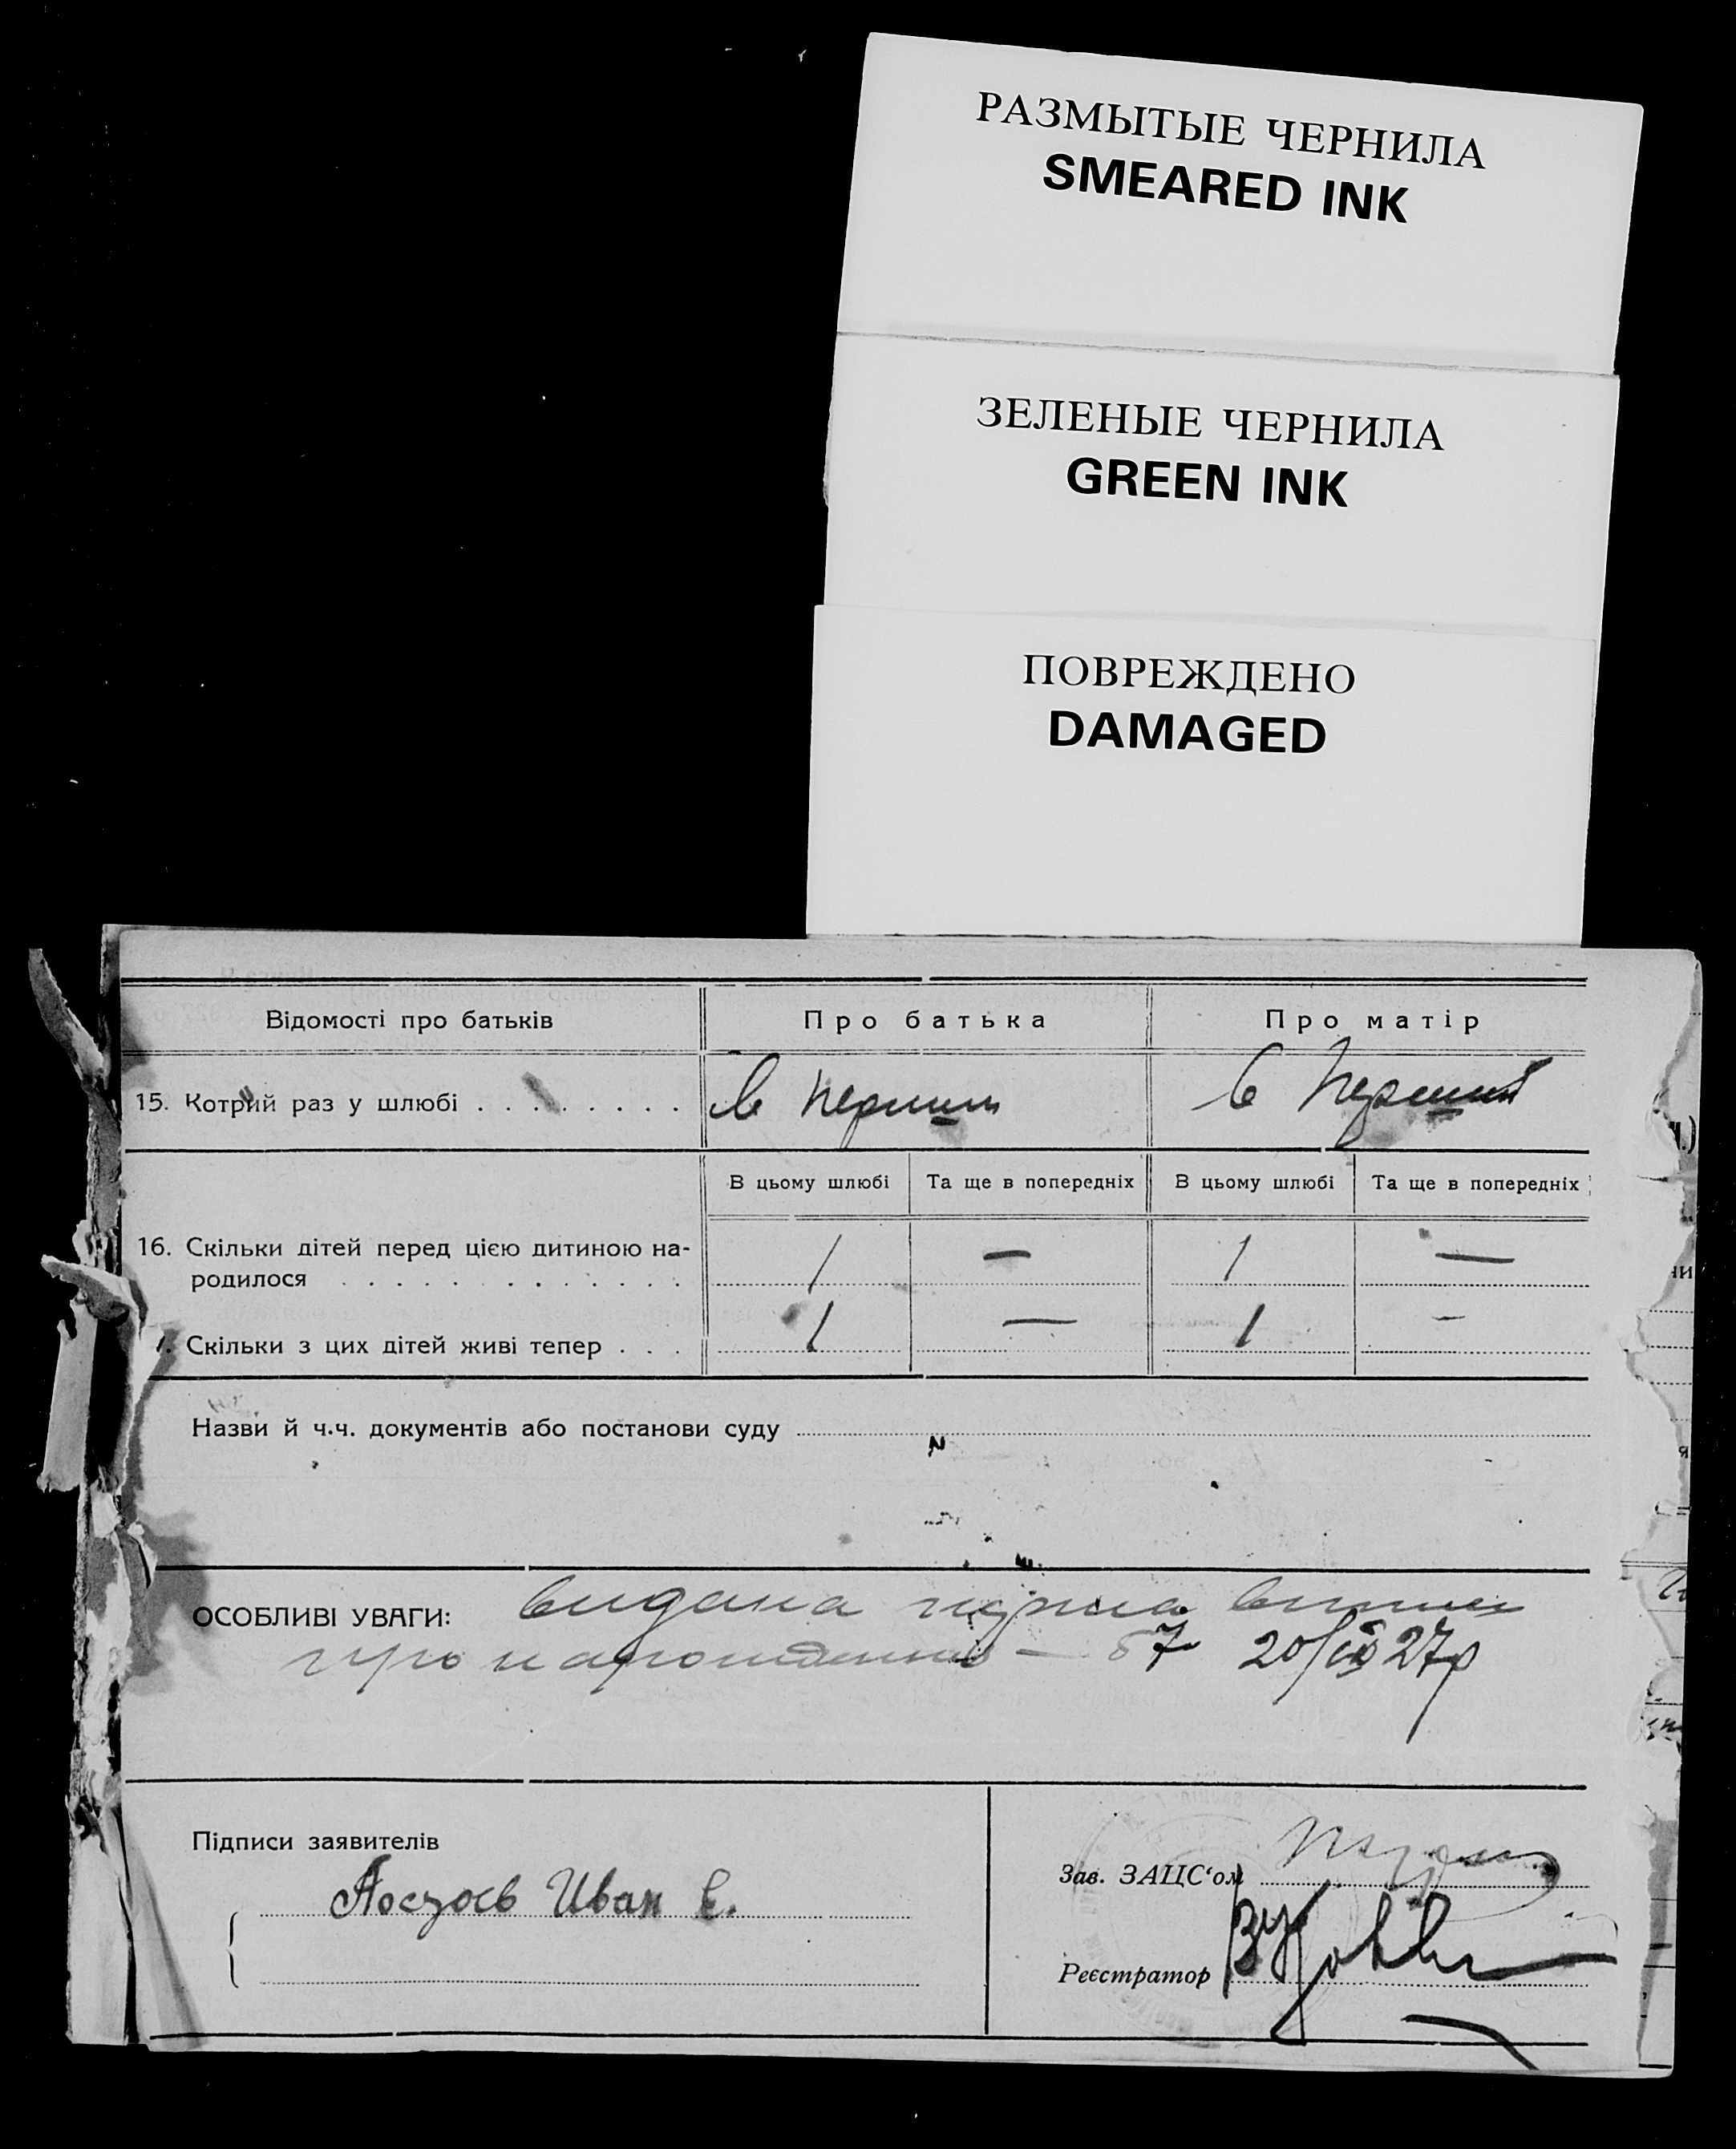 РАЗМЫТЫЕ ЧЕРНИЛА
SMEARED INK
ЗЕЛЕНЫЕ ЧЕРНИЛА
GREEN INK
ПОВРЕЖДЕНО
DAMAGED
Відомості про батьків Про батька Про матір
15. Котрий раз у шлюбі . . . . . . . . в перший в перший
В цьому шлюбі Та ще в попередніх В цьому шлюбі Та ще в попередніх
16. Скільки дітей перед цією дитиною на-
родилося . . . . . . . . . . . . . 1 — 1 —
Скільки з цих дітей живі тепер . . . 1 — 1 —
Назви й ч.ч. документів або постанови суду
ОСОБЛИВІ УВАГИ: видана перша
про — 20/IX 27р
Підписи заявителів
Зав. ЗАЦС‘ом
Иван Е.
Реєстратор